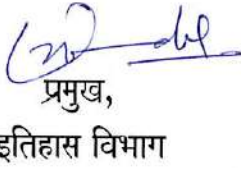 प्रमुख,
इतिहास विभाग